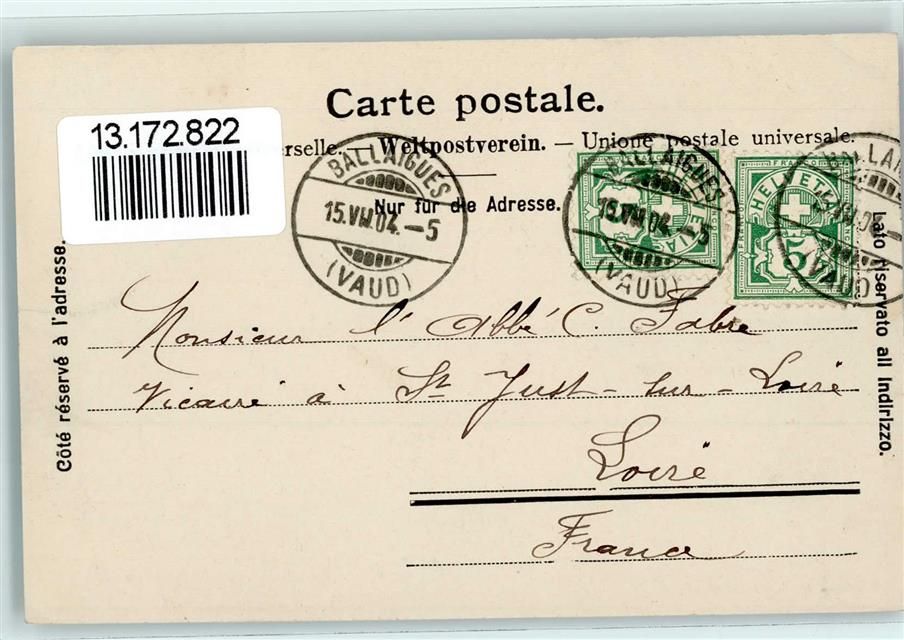 Carte postale.
13.172.822
erselle. — Weltpostverein. — Unione postale universale.
Nur für die Adresse.
BALLAIGUES
15.VIII.04.–5
(VAUD)
BALLAIGUES
15.VIII.04.–5
(VAUD)
HELVETIA
FRANCO
5
VAUD
Côté réservé à l'adresse.
Lato riservato all Indirizzo.
Monsieur l'Abbé C. Fabre
Vicaire à St Just-sur-Loire
Loire
France